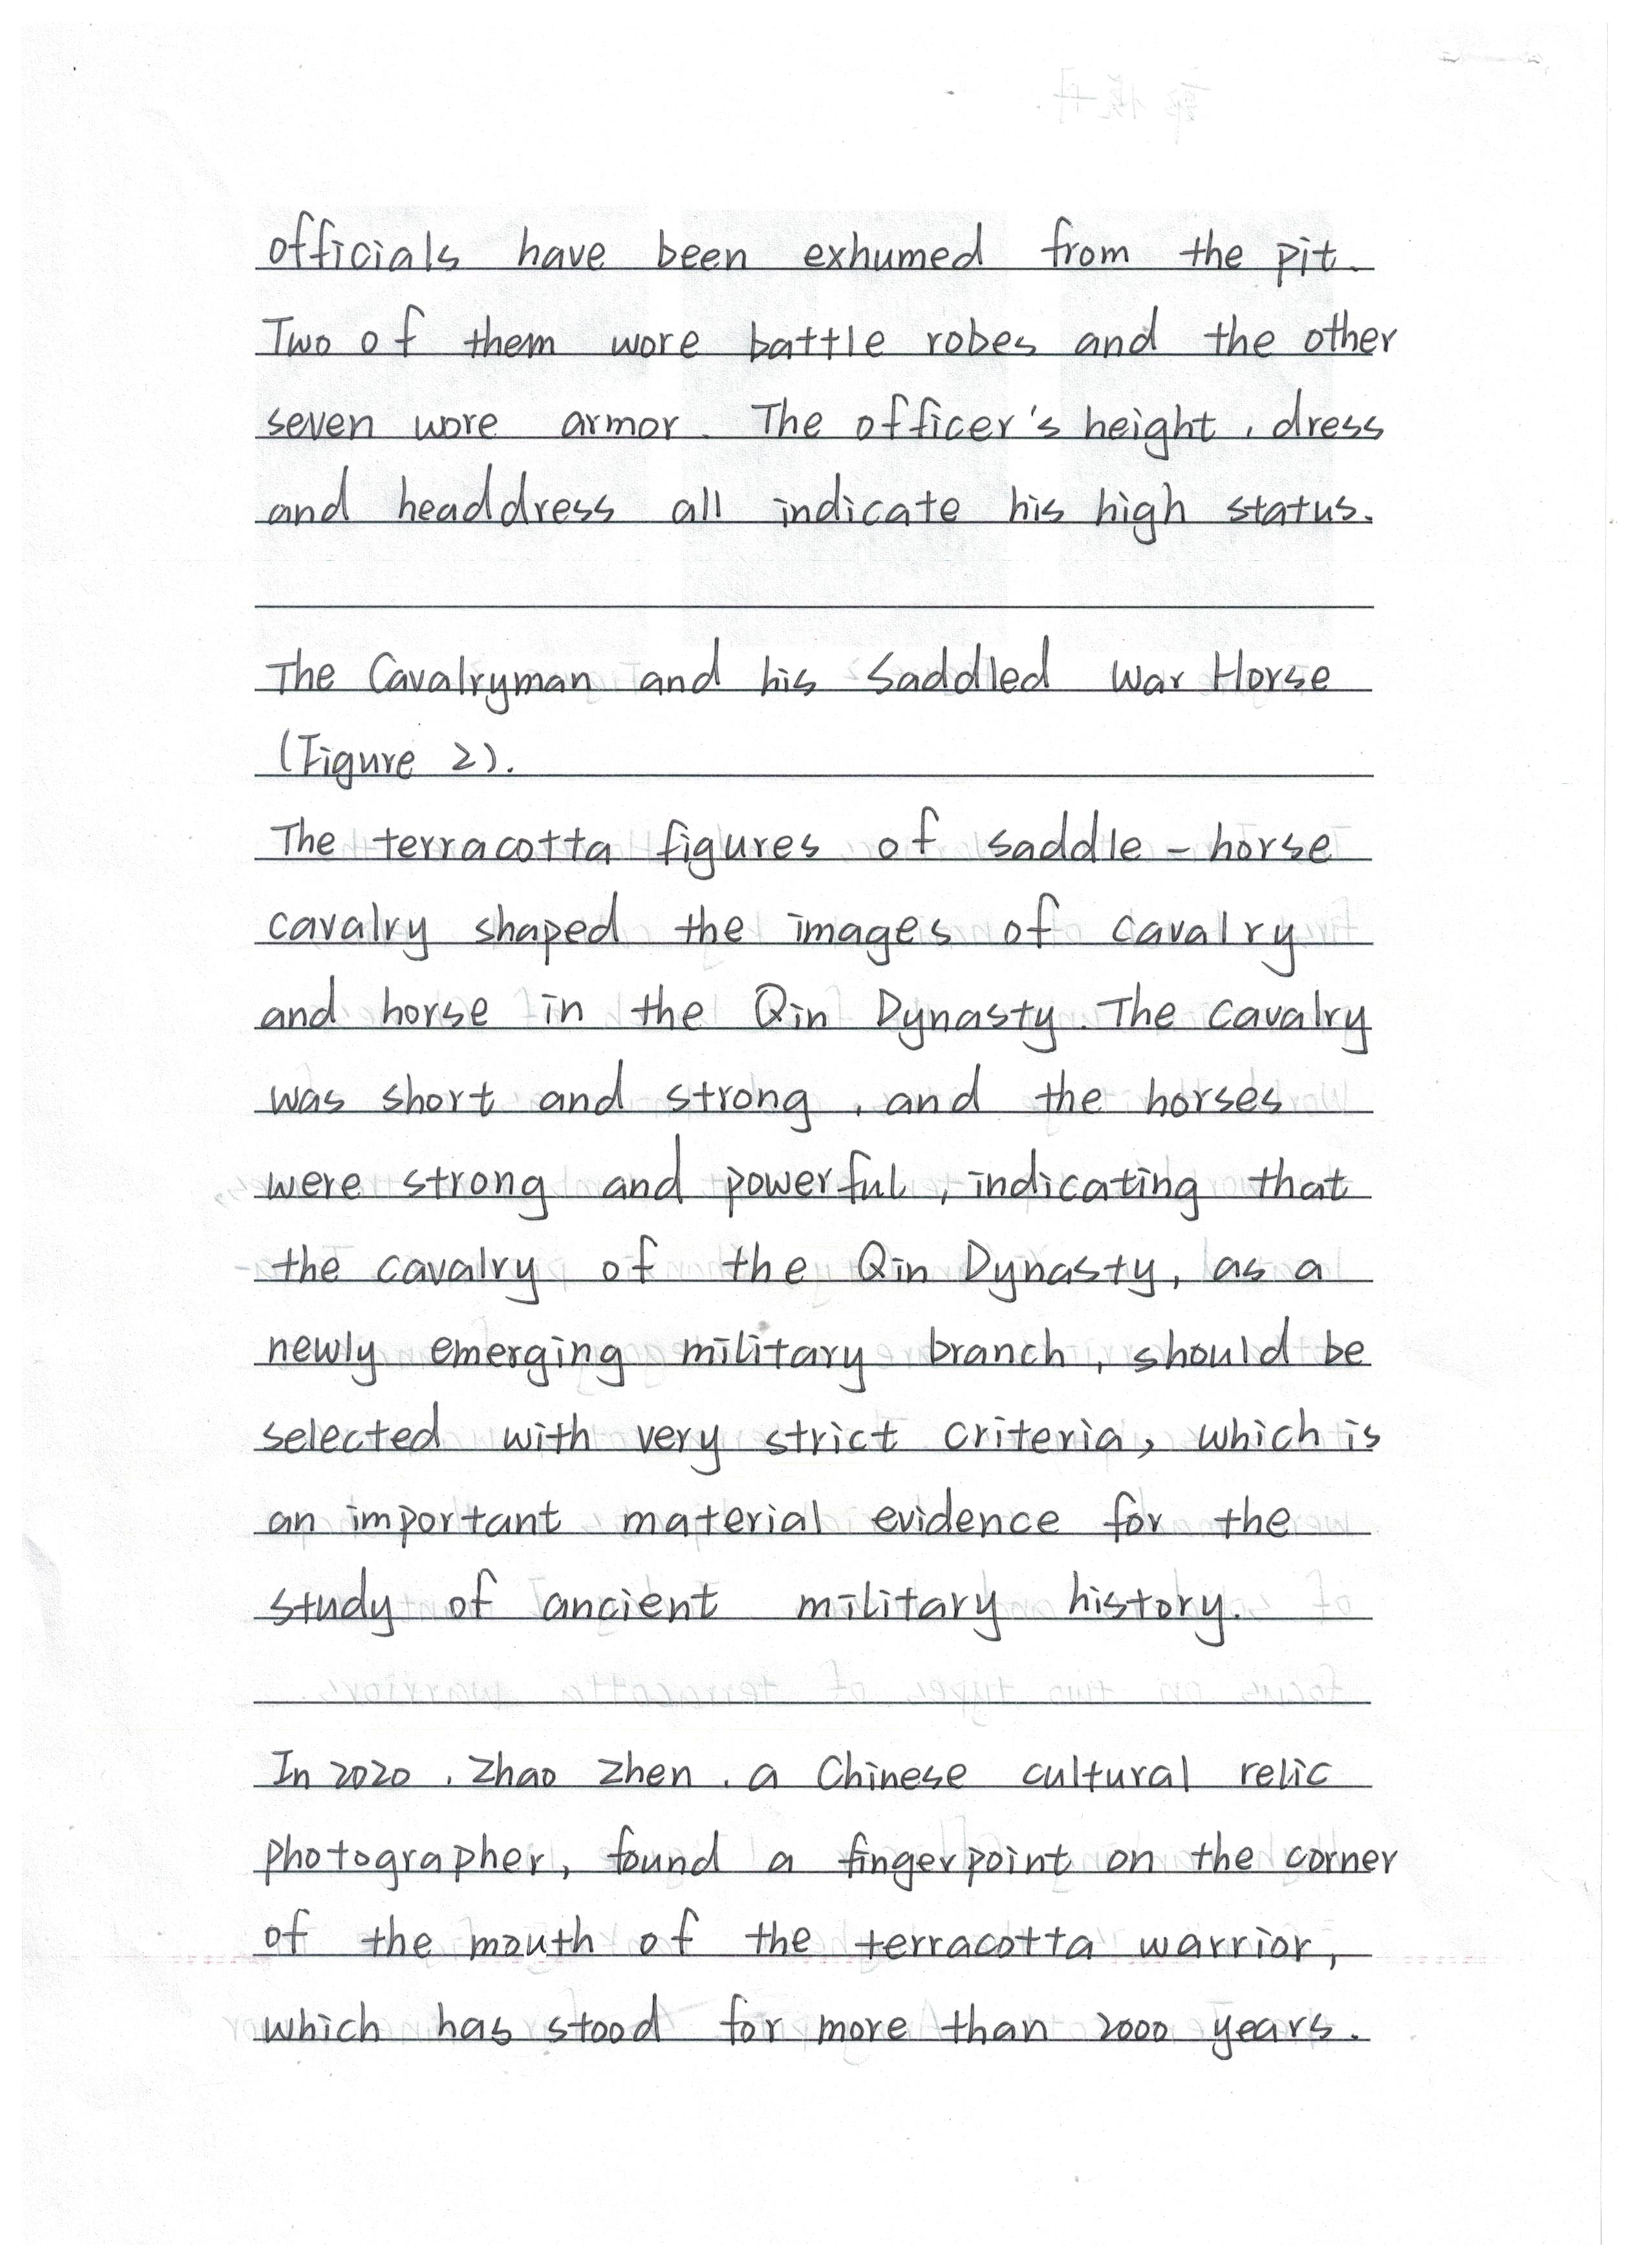 officials have been exhumed from the pit.
Two of them wore battle robes and the other
seven wore armor. The officer's height, dress
and headdress all indicate his high status.
The Cavalryman and his Saddled War Horse
(Figure 2).
The terracotta figures of saddle-horse
cavalry shaped the images of cavalry
and horse in the Qin Dynasty. The cavalry
was short and strong, and the horses
were strong and powerful, indicating that
the cavalry of the Qin Dynasty, as a
newly emerging military branch, should be
selected with very strict criteria, which is
an important material evidence for the
study of ancient military history.
In 2020, Zhao Zhen, a Chinese cultural relic
photographer, found a fingerpoint on the corner
of the mouth of the terracotta warrior,
which has stood for more than 2000 years.